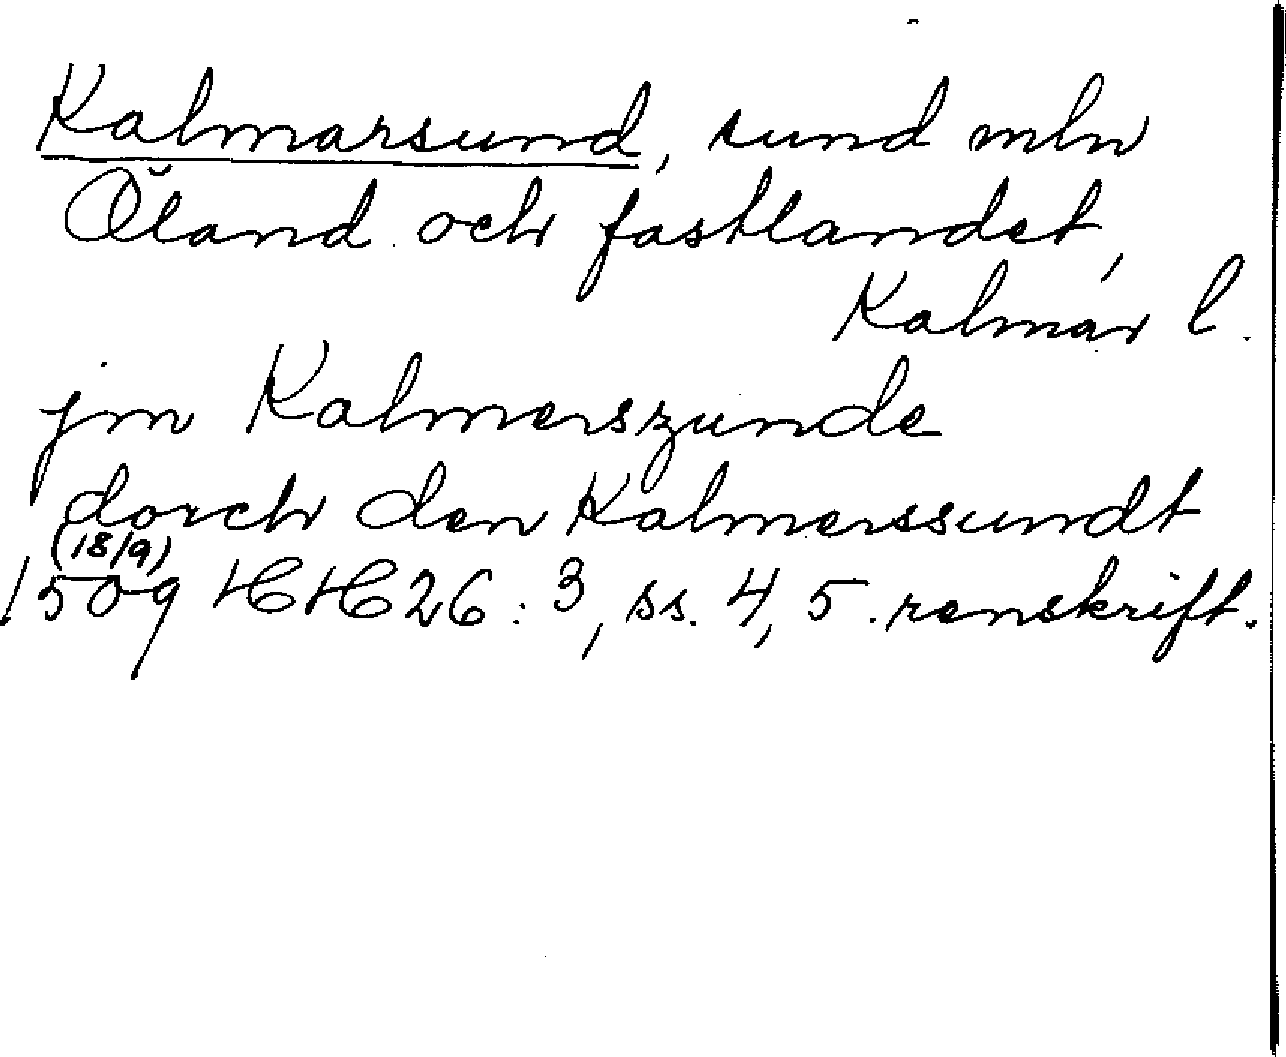 Kalmarsund, sund mln
Öland och fastlandet,
Kalmar l.
jm Kalmerszunde
dorch den Kalmerssundt
(18/9)
1509 HH 26:3, ss. 4, 5. renskrift.